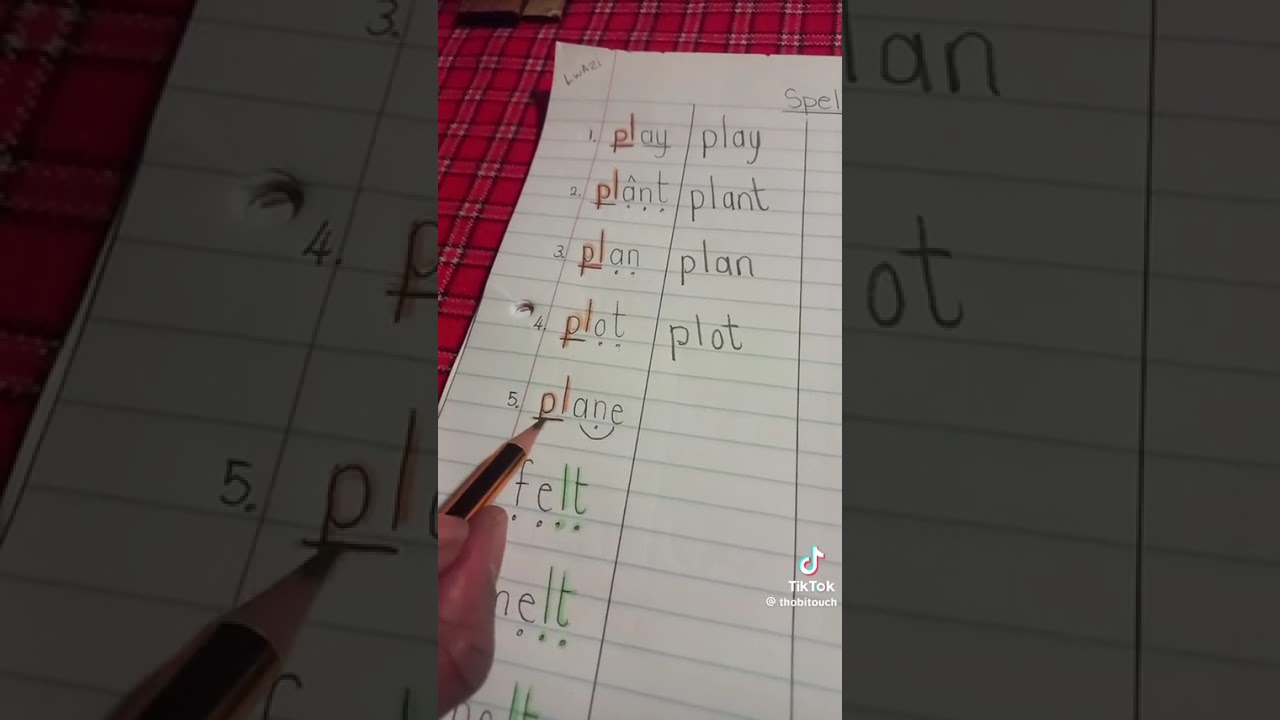 LWAZI
Spel
1. play play
2. plânt plant
3. plan plan
4. plot plot
5. plane
felt
elt
lt
TikTok
@ thobitouch
3.
an
4. p
ot
5. pl